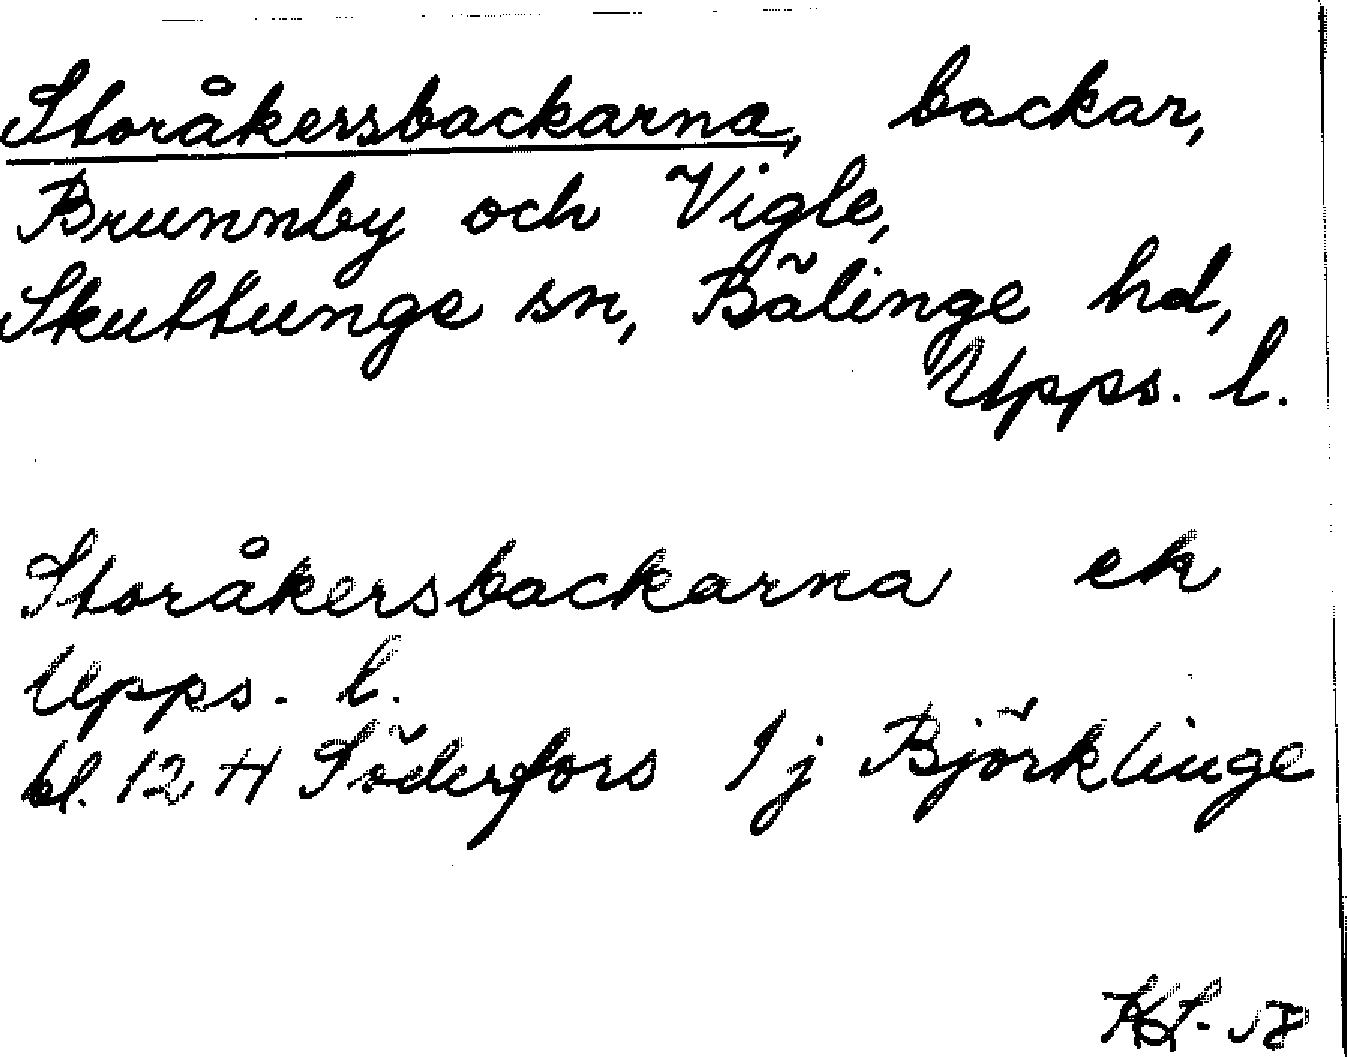 Storåkersbackarna, backar,
Brunnby och Vigle,
Skuttunge sn, Bälinge hd,
Upps. l.
Storåkersbackarna ek
Upps. l.
bl. 12 H Söderfors 1j Björklinge